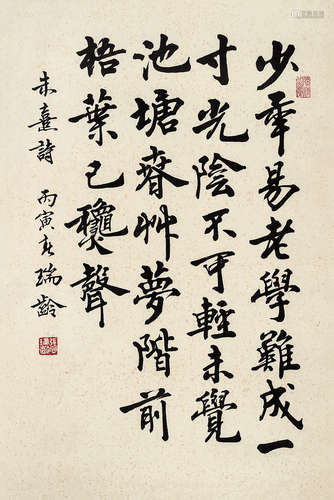 少年易老學難成一
寸光陰不可輕未覺
池塘春艸夢階前
梧葉已龝聲
朱熹詩 丙寅 瑞齡